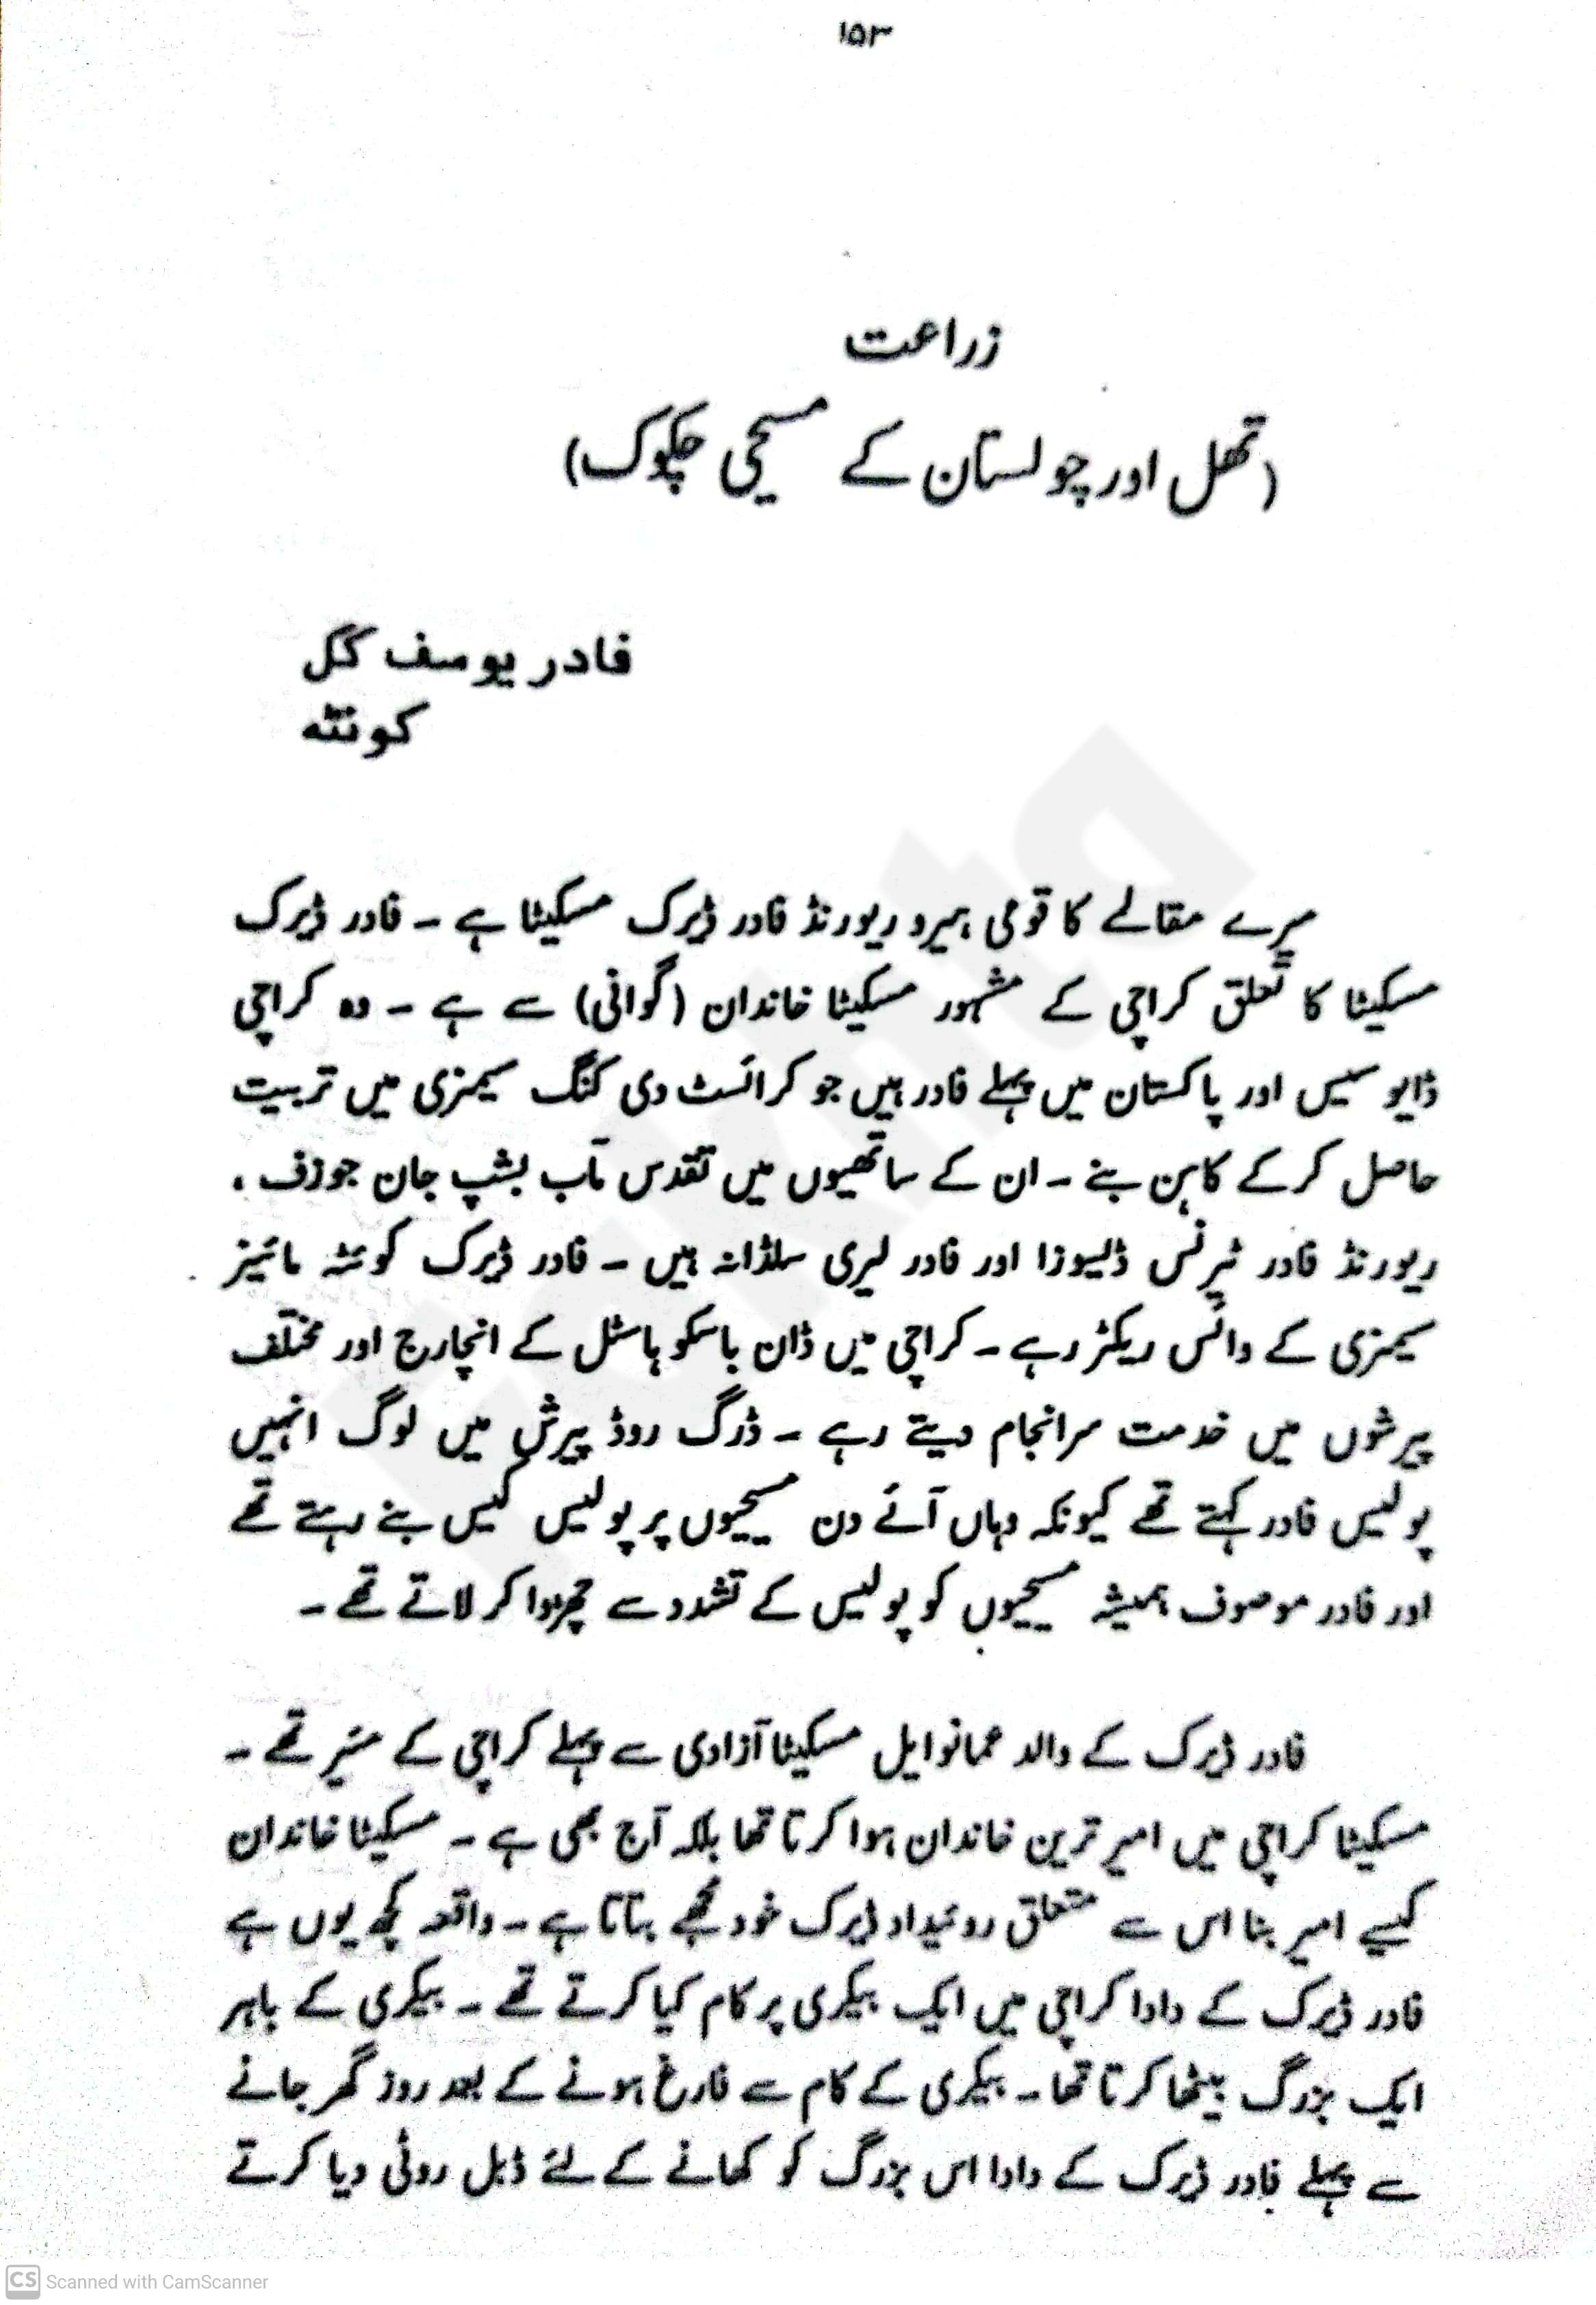 ۱۵۳
زراعت
(تھل اور چولستان کے مسیحی چکوک)
فادر یوسف گل
کوئٹہ
میرے مقالے کا قومی ہیرو ریورنڈ فادر ڈیرک مسکیٹا ہے ۔ فادر ڈیرک
مسکیٹا کا تعلق کراچی کے مشہور مسکیٹا خاندان (گوانی) سے ہے ۔ وہ کراچی
ڈایوسیس اور پاکستان میں پہلے فادر ہیں جو کرائسٹ دی کنگ سیمنری میں تربیت
حاصل کر کے کاہن بنے ۔ ان کے ساتھیوں میں تقدس مآب بشپ جان جوزف ،
ریورنڈ فادر ٹیرنس ڈلیوزا اور فادر لیری سلڈانہ ہیں ۔ فادر ڈیرک کوئٹہ مائینر
سیمنری کے وائس ریکٹر رہے ۔ کراچی میں ڈان باسکو ہاسٹل کے انچارج اور مختلف
پیرشوں میں خدمت سرانجام دیتے رہے ۔ ڈرگ روڈ پیرش میں لوگ انہیں
پولیس فادر کہتے تھے کیونکہ وہاں آئے دن مسیحیوں پر پولیس کیس بنے رہتے تھے
اور فادر موصوف ہمیشہ مسیحیوں کو پولیس کے تشدد سے چھڑوا کر لاتے تھے ۔
فادر ڈیرک کے والد عمانوایل مسکیٹا آزادی سے پہلے کراچی کے میئر تھے ۔
مسکیٹا کراچی میں امیر ترین خاندان ہوا کرتا تھا بلکہ آج بھی ہے ۔ مسکیٹا خاندان
کیسے امیر بنا اس سے متعلق روئیداد ڈیرک خود مجھے بتاتا ہے ۔ واقعہ کچھ یوں ہے
فادر ڈیرک کے دادا کراچی میں ایک بیکری پر کام کیا کرتے تھے ۔ بیکری کے باہر
ایک بزرگ بیٹھا کرتا تھا ۔ بیکری کے کام سے فارغ ہونے کے بعد روز گھر جانے
سے پہلے فادر ڈیرک کے دادا اس بزرگ کو کھانے کے لئے ڈبل روٹی دیا کرتے
CS Scanned with CamScanner